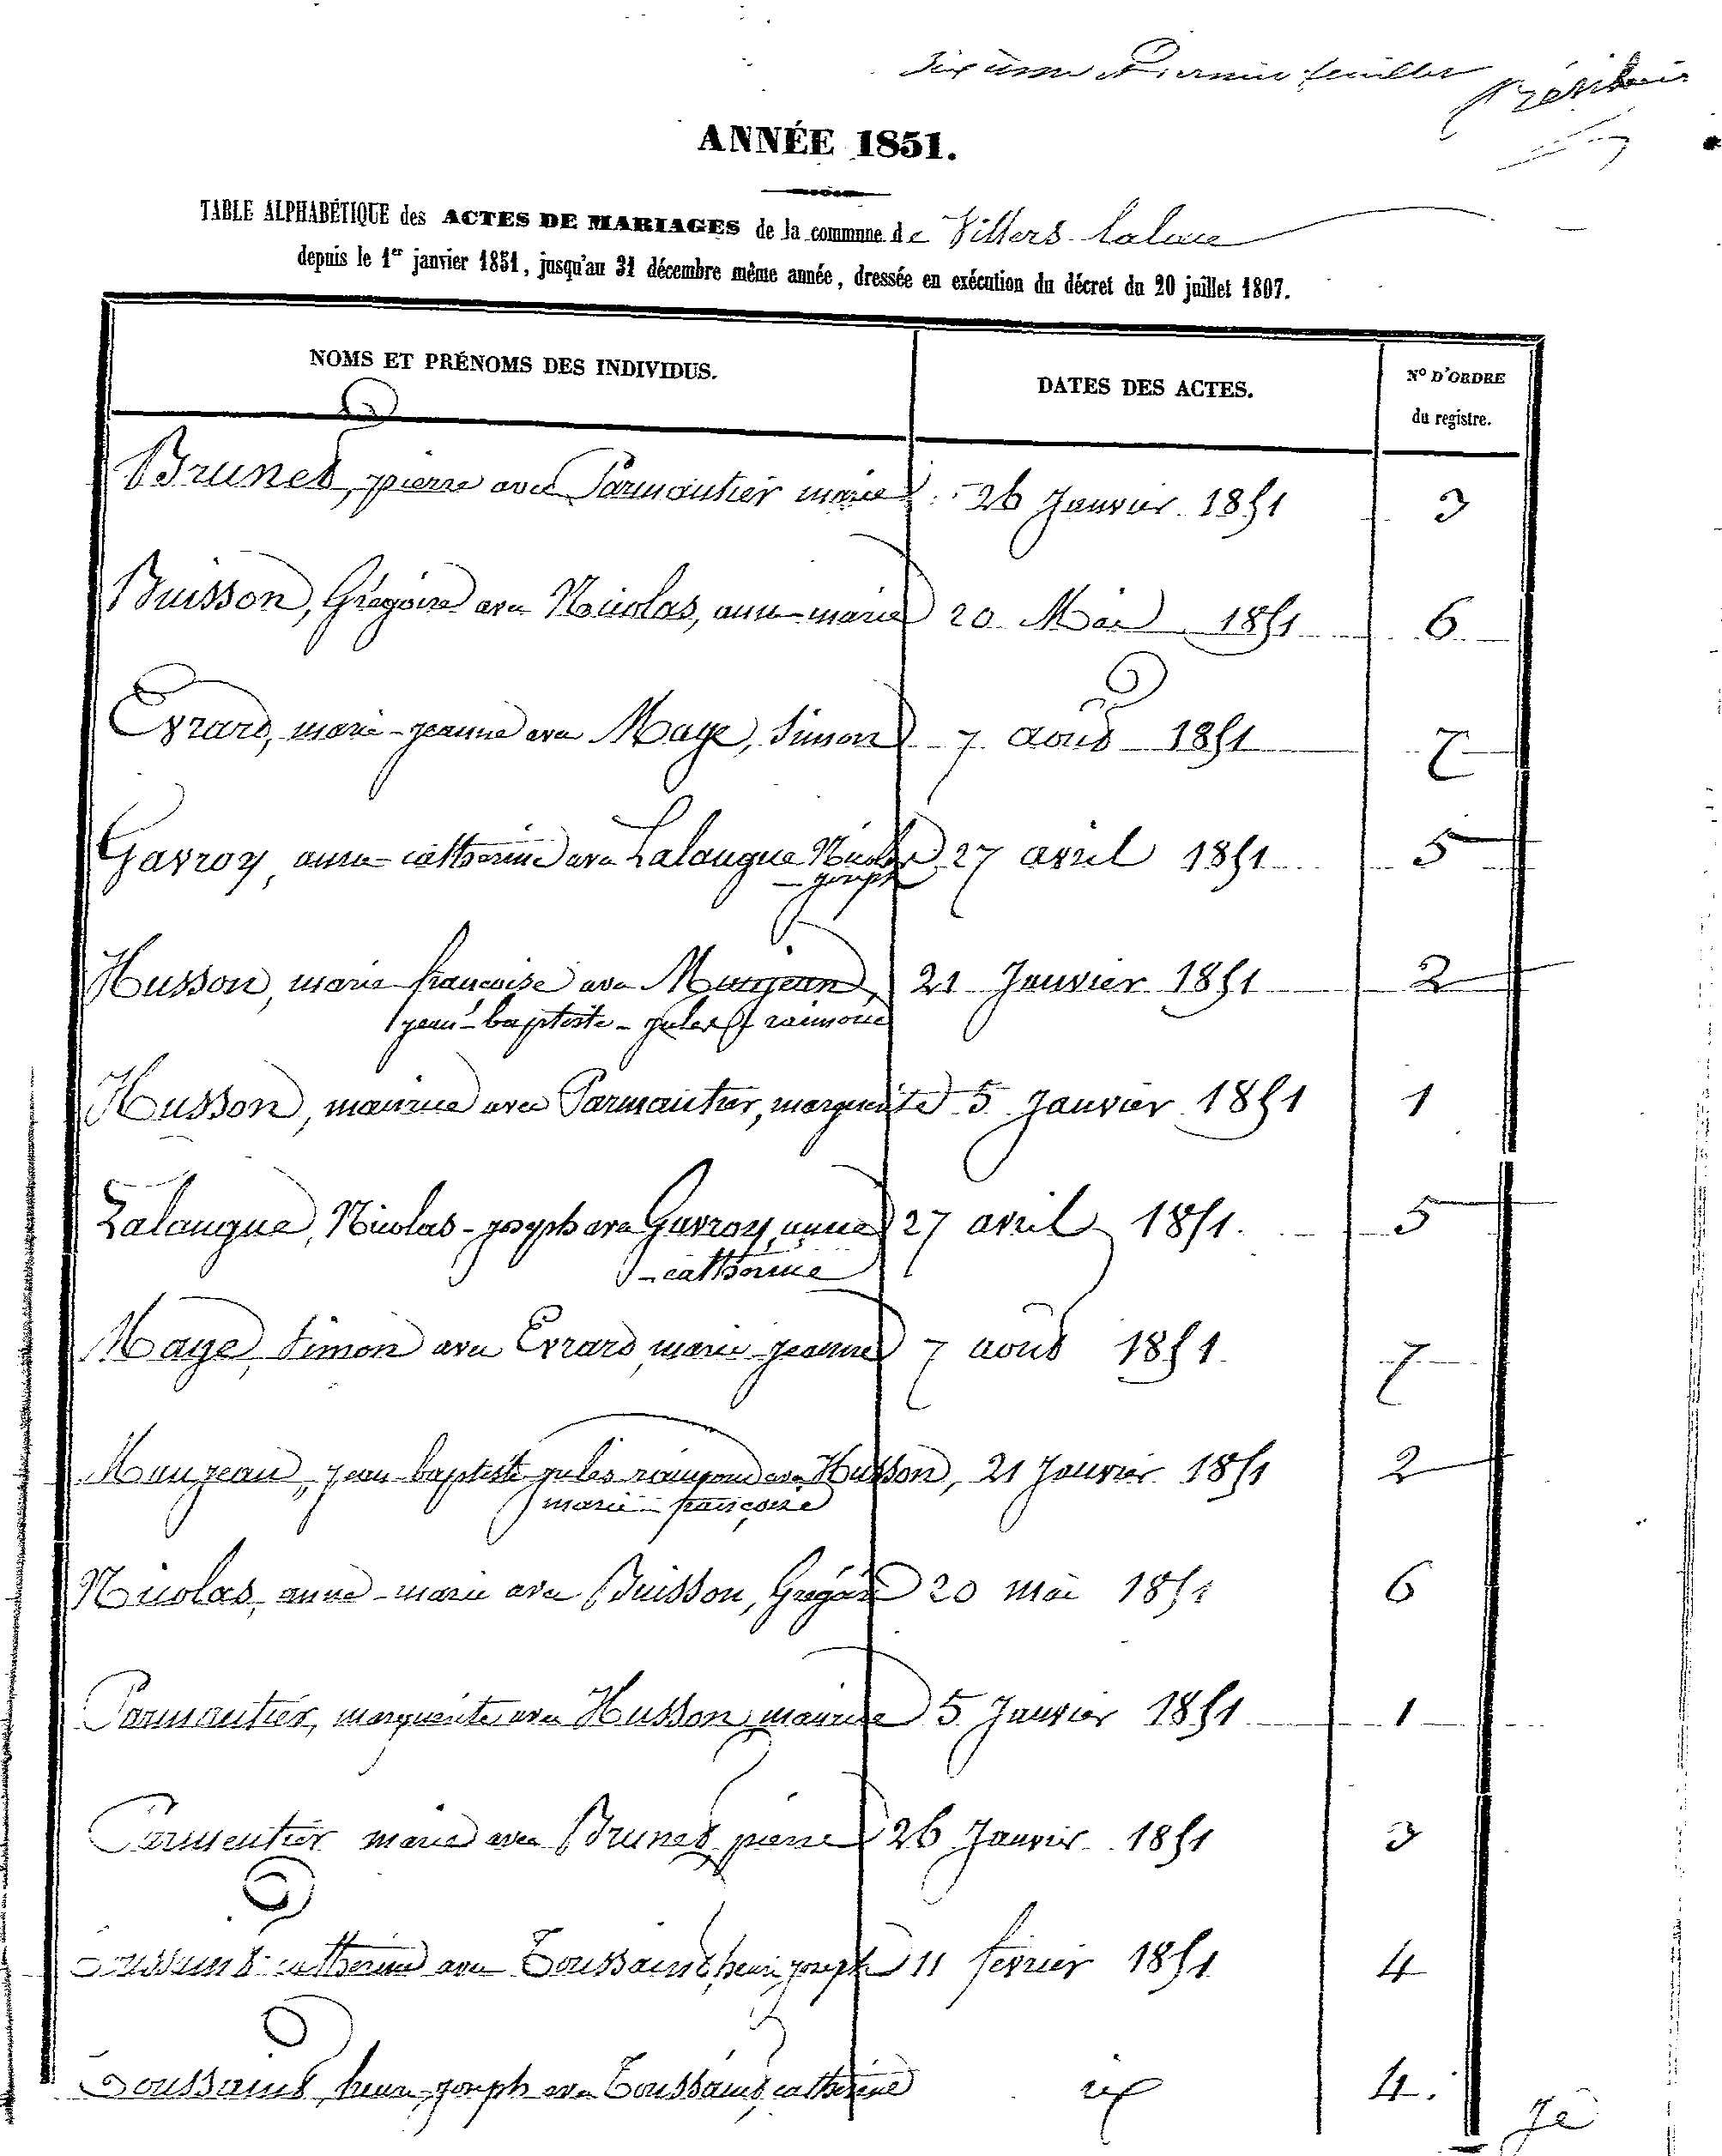 feuillet
ANNÉE 1851.
TABLE ALPHABÉTIQUE des ACTES DE MARIAGES de la commune de Villers
depuis le 1er janvier 1851, jusqu'au 31 décembre même année, dressée en exécution du décret du 20 juillet 1807.
NOMS ET PRÉNOMS DES INDIVIDUS. DATES DES ACTES. No D'ORDRE
du registre.
Brunet, pierre avec Parmantier marie 26 Janvier 1851 3
Buisson, Grégoire avec Nicolas, anne-marie 20 Mai 1851 6
Evrard, marie-jeanne avec Maye, Simon 7 août 1851 7
Gavroy, anne-catherine avec Lalangue Nicolas 27 avril 1851 5
-joseph
Husson, marie françoise avec Maujean, 21 Janvier 1851 2
jean-baptiste-jules raimond
Husson, maurice avec Parmantier, marguerite 5 Janvier 1851 1
Lalangue, Nicolas-joseph avec Gavroy, anne 27 avril 1851. 5
-catherine
Maye, Simon avec Evrard, marie jeanne 7 août 1851 7
Maujean, jean baptiste jules raimond avec Husson, 21 Janvier 1851 2
marie-françoise
Nicolas, anne-marie avec Buisson, Grégoire 20 mai 1851 6
Parmantier, marguerite avec Husson, maurice 5 Janvier 1851 1
Parmentier marie avec Brunet pierre 26 Janvier 1851 3
Toussaint catherine avec Toussaint, henri joseph 11 février 1851 4
Toussaint, henri-joseph avec Toussaint, catherine 4.